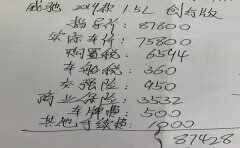 威驰 2019款 1.5L 创行版
指导价: 87800
实际车价: 75800
购置税: 6594
车船税: 360
交强险: 950
商业保险: 3532
车牌费: 500
其他手续费: 1000
87428